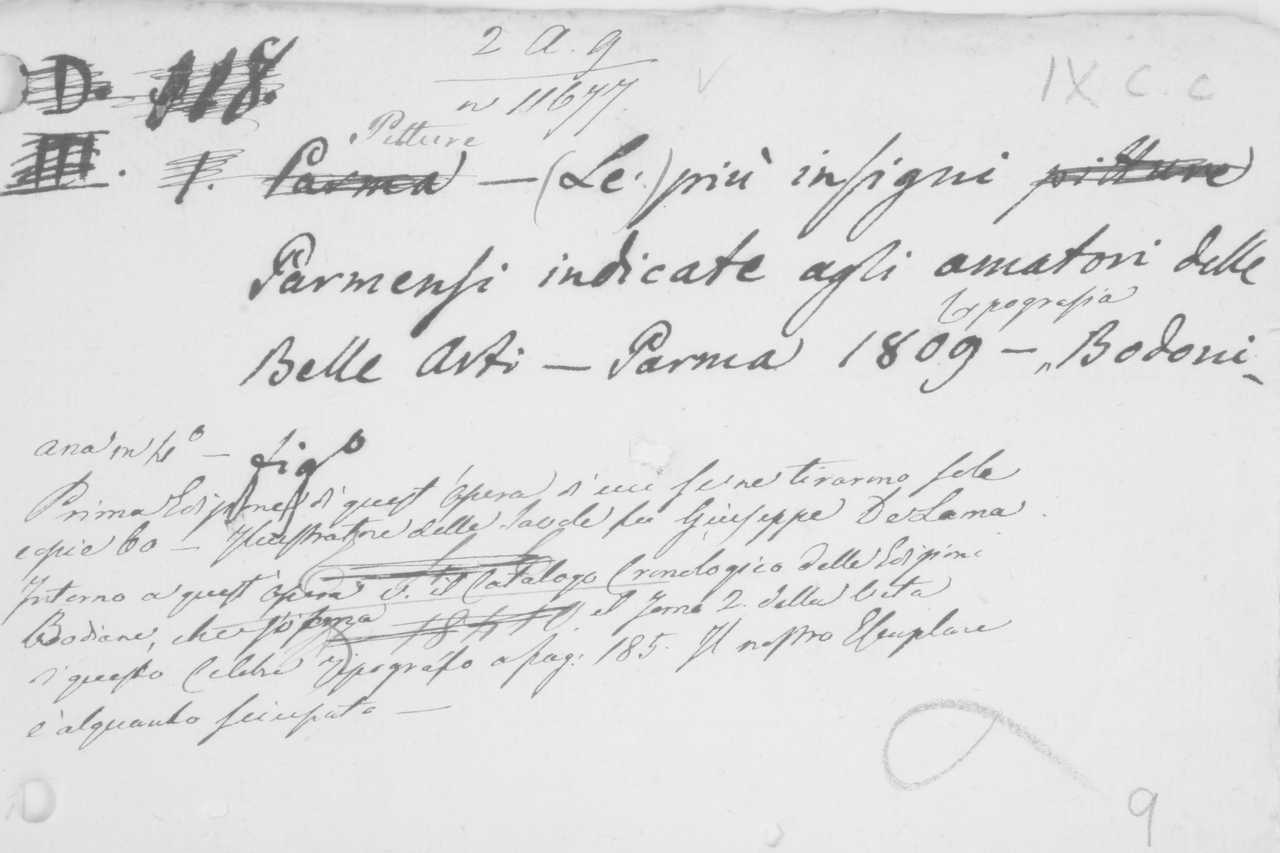 2 A. 9
D. 118.
n 11677
IX C. C
Pitture
III. 1. Parma — (Le) più insigni pitture
Parmensi indicate agli amatori delle
typografia
Belle Arti — Parma 1809 — Bodoni
in 4º — figº
Prima Edizione di quest'opera di cui se ne tirarono sole
copie 60 — Illustratore delle Tavole fu Giuseppe De Lama.
Intorno a quest'opera v. il Catalogo Cronologico delle Edizioni
Bodiane, che forma il Tomo 2. della Vita
di questo Celebre Tipografo a pag. 185. Il nostro Esemplare
è alquanto sciupato —
9